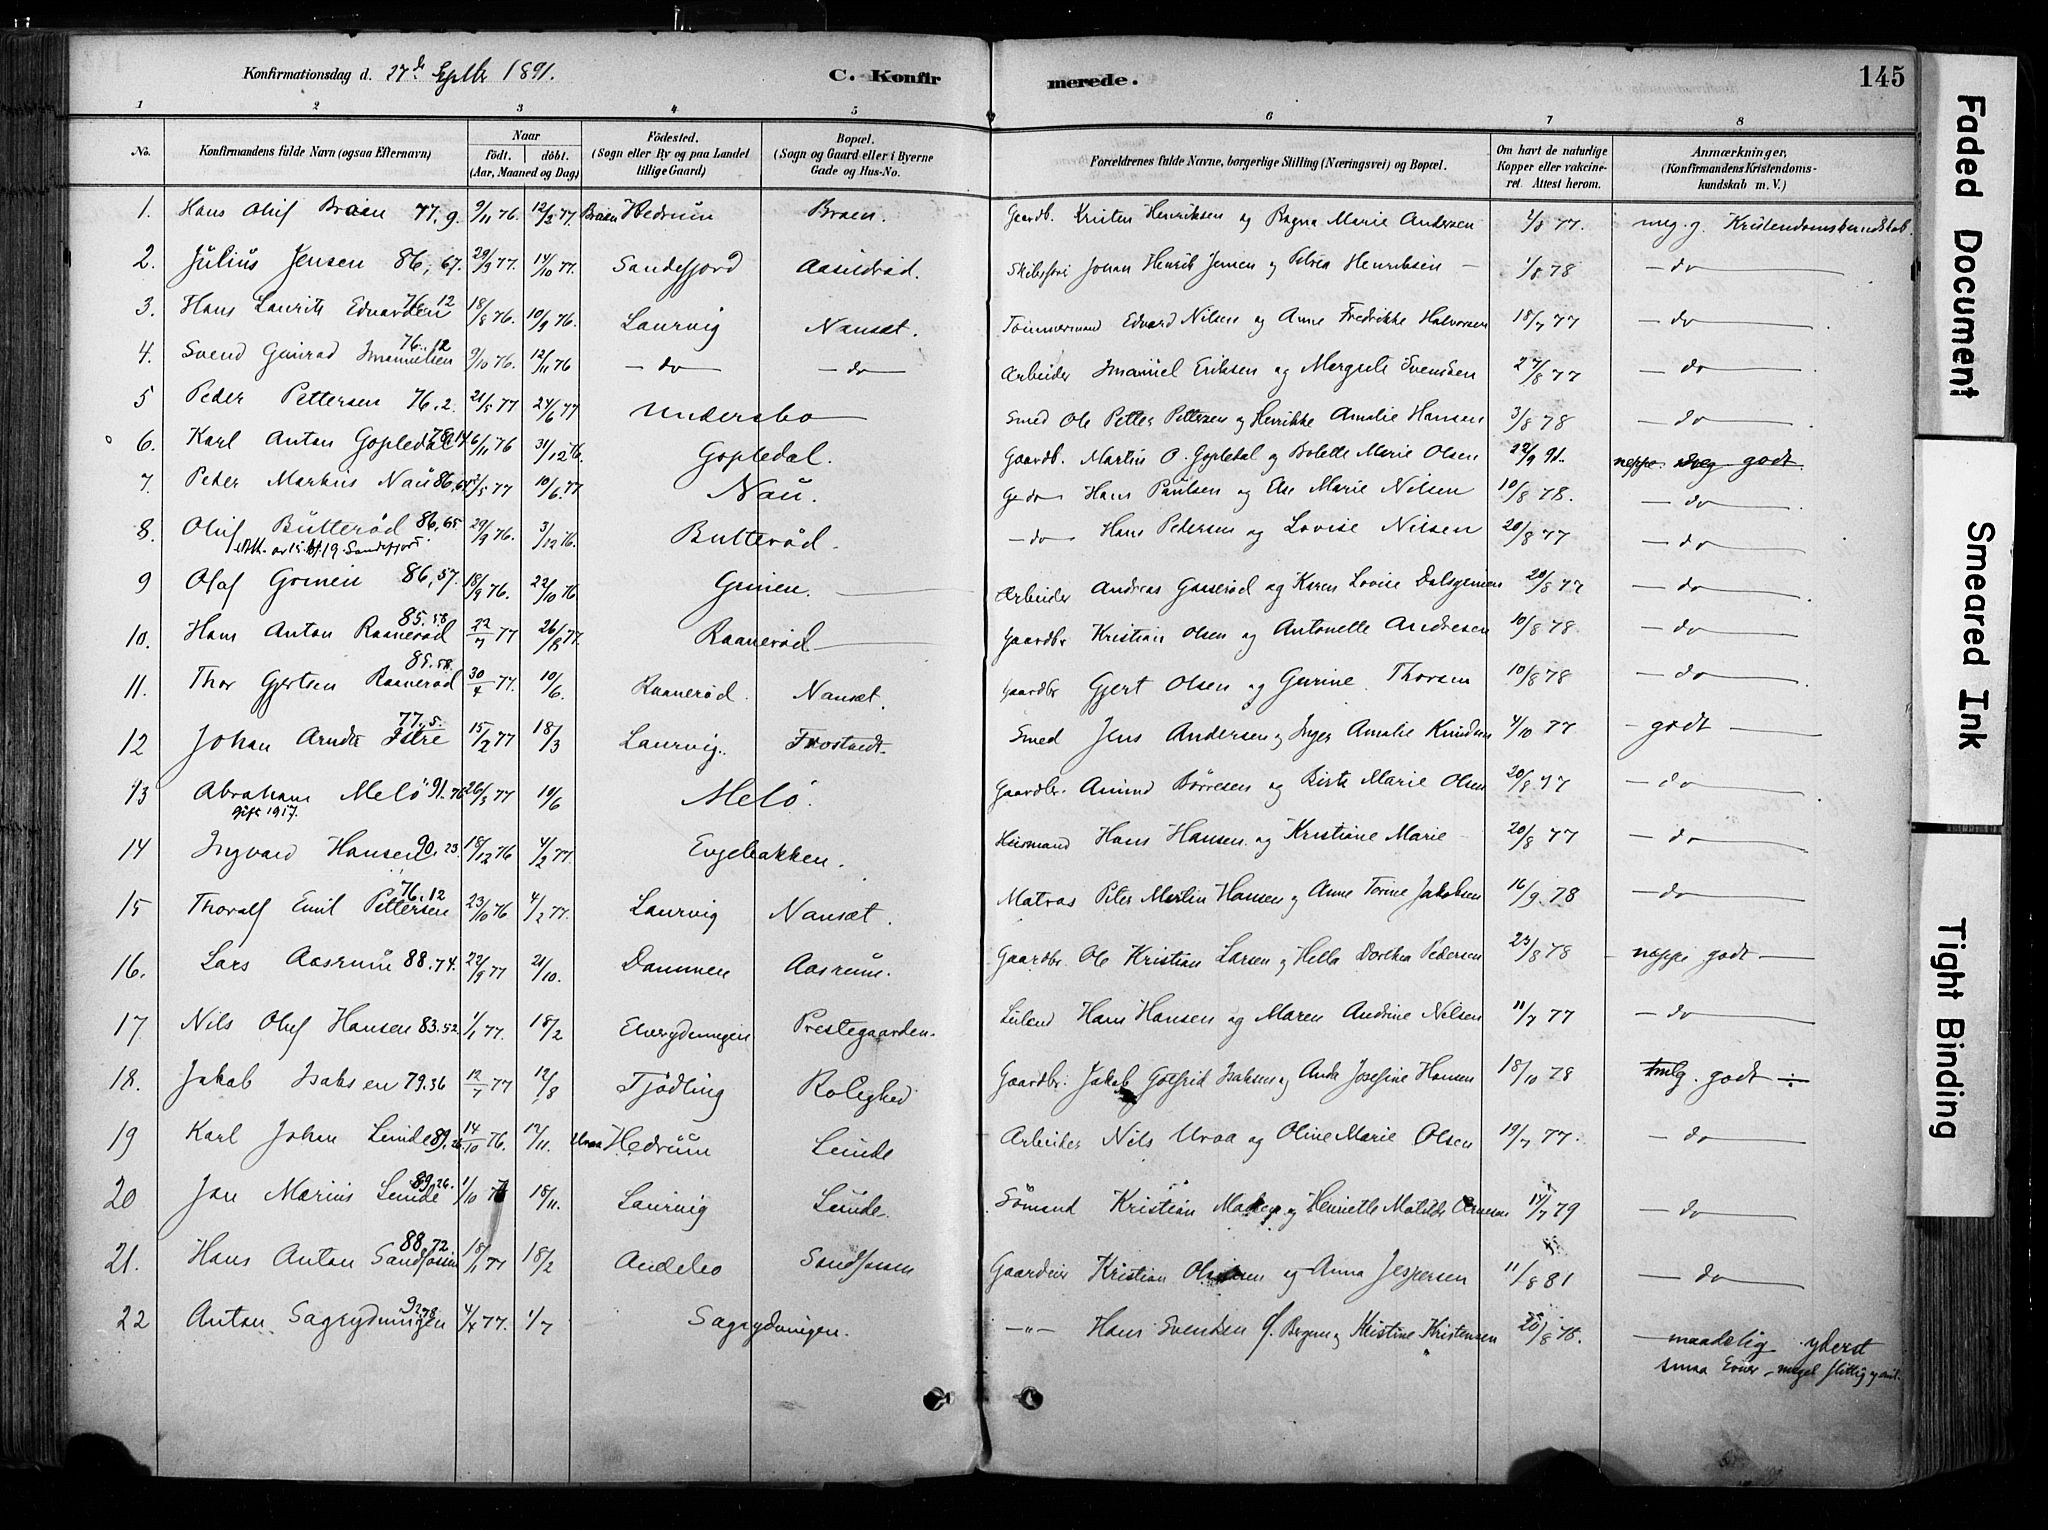 Konfirmationsdag d. 27de Septbr 1891. C. Konfirmerede. 145
1 2 3 4 5 6 7 8
No. Konfirmandens fulde Navn (ogsaa Efternavn) Naar födt. döbt. (Aar, Maaned og Dag) Födested. (Sogn eller By og paa Landet tillige Gaard) Bopæl. (Sogn og Gaard eller i Byerne Gade og Hus-No. Forældrenes fulde Navne, borgerlige Stilling (Næringsvei) og Bopæl. Om havt de naturlige Kopper eller vakcineret. Attest herom. Anmærkninger, (Konfirmandens Kristendomskundskab m. V.)
1. Hans Oluf Braen 77,9. 9/11 76. 12/2 77. Braen Hedrum Braen. Gaardb. Kristen Henriksen og Ragna Marie Andersen 1/8 77. meg. g. Kristendomskundskab.
2. Julius Jensen 86, 67. 29/9 77. 14/10 77. Sandefjord Aasildröd. Johan Henrik Jensen og Petrea Henriksen 1/8 78 do
3. Hans Laurits Edvardsen 76,12 18/8 76. 10/9 76. Laurvig Nanset. Tømmermand Edvard Nilsen og Anne Fredrikke Halvorsen 18/7 77 do
4. Svend Gunrad Imanuelsen 76.12 9/10 76. 12/11 76 do do Arbeider Imanuel Eriksen og Margrete Svendsen 27/8 77 do
5 Peder Pettersen 76.2. 21/5 77 24/6 77 Undersbo Smed Ole Petter Pettersen og Henrikke Amalie Hansen 3/8 78 do
6. Karl Anton Gopledal 76,14 6/11 76 31/12 76. Gopledal. Gaardb. Martin O. Gopledal og Bolette Marie Olsen 22/9 91. neppe godt.
7. Peder Markus Nau 86, /5 77 10/6 77 Nau. Hans Paulsen og Else Marie Nilsen 10/8 78. do
8. Oluf Butteröd 86,65 29/9 76. 3/12 76. Butteröd. do Hans Pedersen og Lovise Nilsen 20/8 77 do
19 Sandefjord
9 Olaf Grinen 86,57. 18/9 76. 22/10 76 Grinen. Arbeider Andreas Gaaseröd og Karen Lovise 20/8 77 do
10. Hans Anton Raaneröd 85.58 22/7 77 26/8 77. Raaneröd Gaardbr Kristian Olsen og Antonette Andresen 10/8 78 do
11. Thor Gjertsen Raaneröd 85.58. 30/4 77. 10/6. Raaneröd. Nanset. Gaardbr Gjert Olsen og Gurine Thorsen 10/8 78 do
12 Johan Arndt Istre 77,5. 15/2 77 18/3 Laurvig. Frostvedt. Smed Jens Andersen og Inger Amalie Knudsen 4/10 77 godt
13 Abraham Melö 91.76 26/3 77 10/6 Melö. Gaardbr. Amund Börresen og Birte Marie Olsen 20/8 77 do
gift 1917.
14 Ingvard Hansen 90.23. 18/12 76 4/2 77. Evjebakken. Husmand Hans Hansen og Kristiane Marie 20/8 77 do
15 Thoralf Emil Pettersen 76.12 23/10 76 4/2 77. Laurvig Nanset. Matros Peter Martin Hansen og Anne Torine Jakobsen 16/9 78 do
16. Lars Aasrum 88.74. 22/9 77 21/10. Dammen Aasrum. Gaardbr. Ole Kristian Larsen og Hella Dorthea Pedersen 23/8 78 neppe godt
17 Nils Oluf Hansen 83.52 1/1 77. 18/2 Elverydningen Prestegaarden. Hans Hansen og Maren Andrine Nilsen 11/7 77 do
18. Jakob Isaksen 79.36 12/7 77 12/8 Tjödling Rolighed Gaardbr. Jakob Gotfrid Isaksen og Anda Josefine Hansen 18/10 78 tmlg. godt
19 Karl Johan Lunde 89.26 14/10 76. 12/11. Uvaa Hedrum Lunde Arbeider Nils Uvaa og Oline Marie Olsen 19/7 77. do
20 Jan Marius Lunde 89,26. 1/10 76 18/11. Laurvig Lunde. Sömand Kristian Madsen og Henriette Matilde Arnesen 14/7 79 do
21. Hans Anton Sandfossen 88,72 18/1 77 18/2 Andebo Sandfossen Gaardeier Kristian Olsen og Anna Jespersen 11/8 81 do
22 Anton Sagrydningen 92,78 4/4 77. 1/7 Sagrydningen. -"- Hans Svendsen og Kristine Kristensen 20/8 78. maadelig yderst
smaa Evner, meget flittig
Faded Document
Smeared Ink
Tight Binding